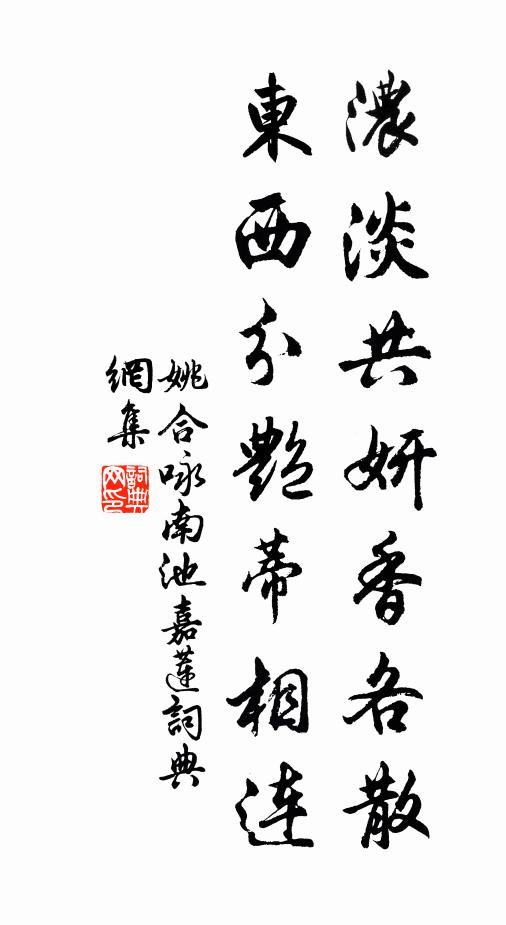 濃淡共妍香各散
東西分艷蒂相連
姚合咏南池嘉蓮詞典
網集
詞典
網印